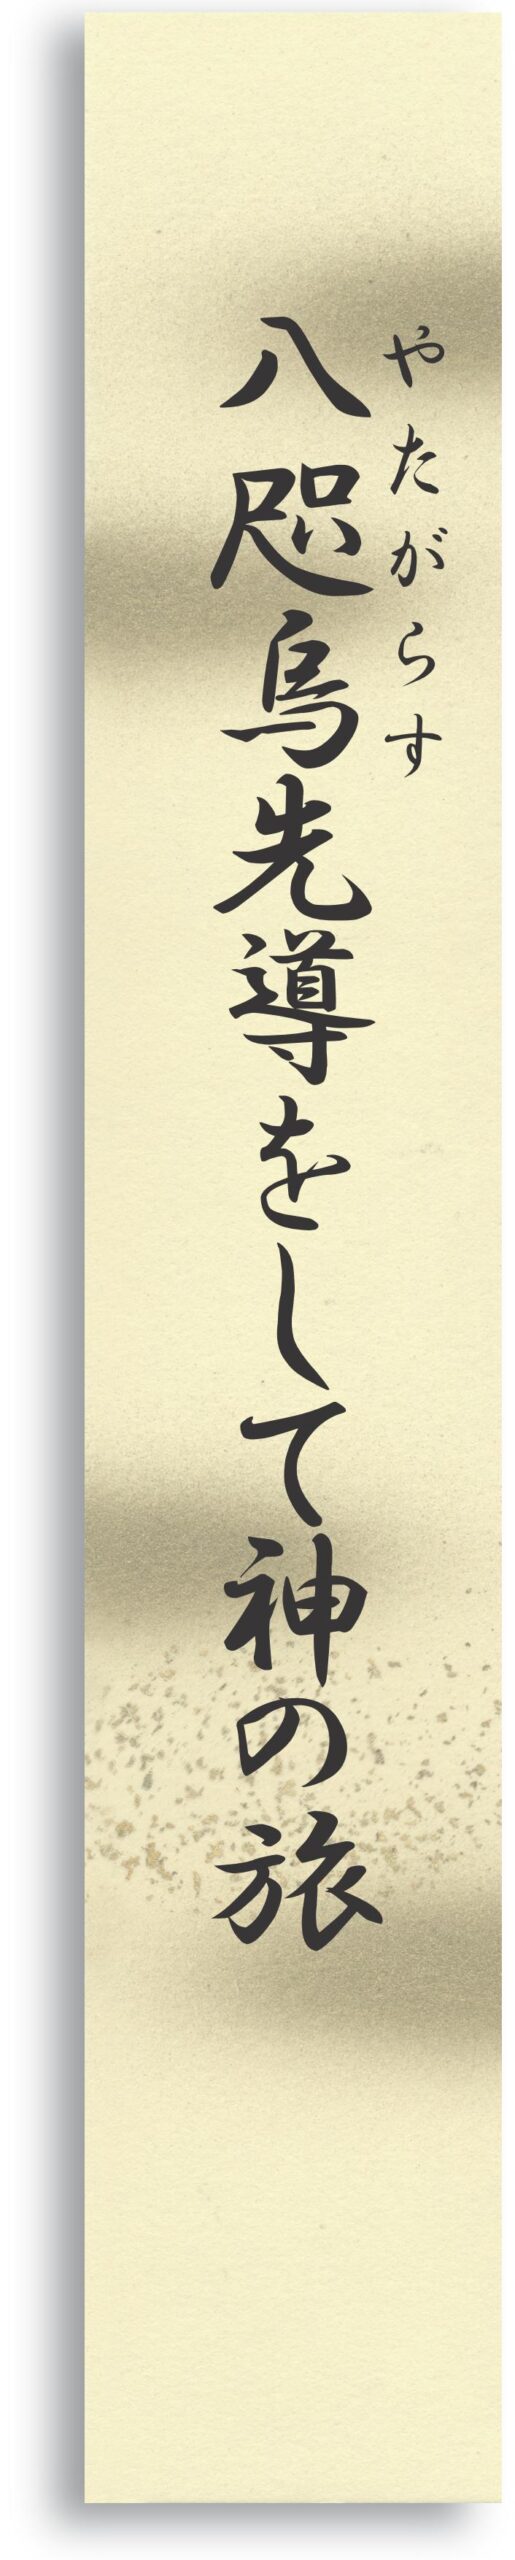 やたがらす
八咫烏先導をして神の旅